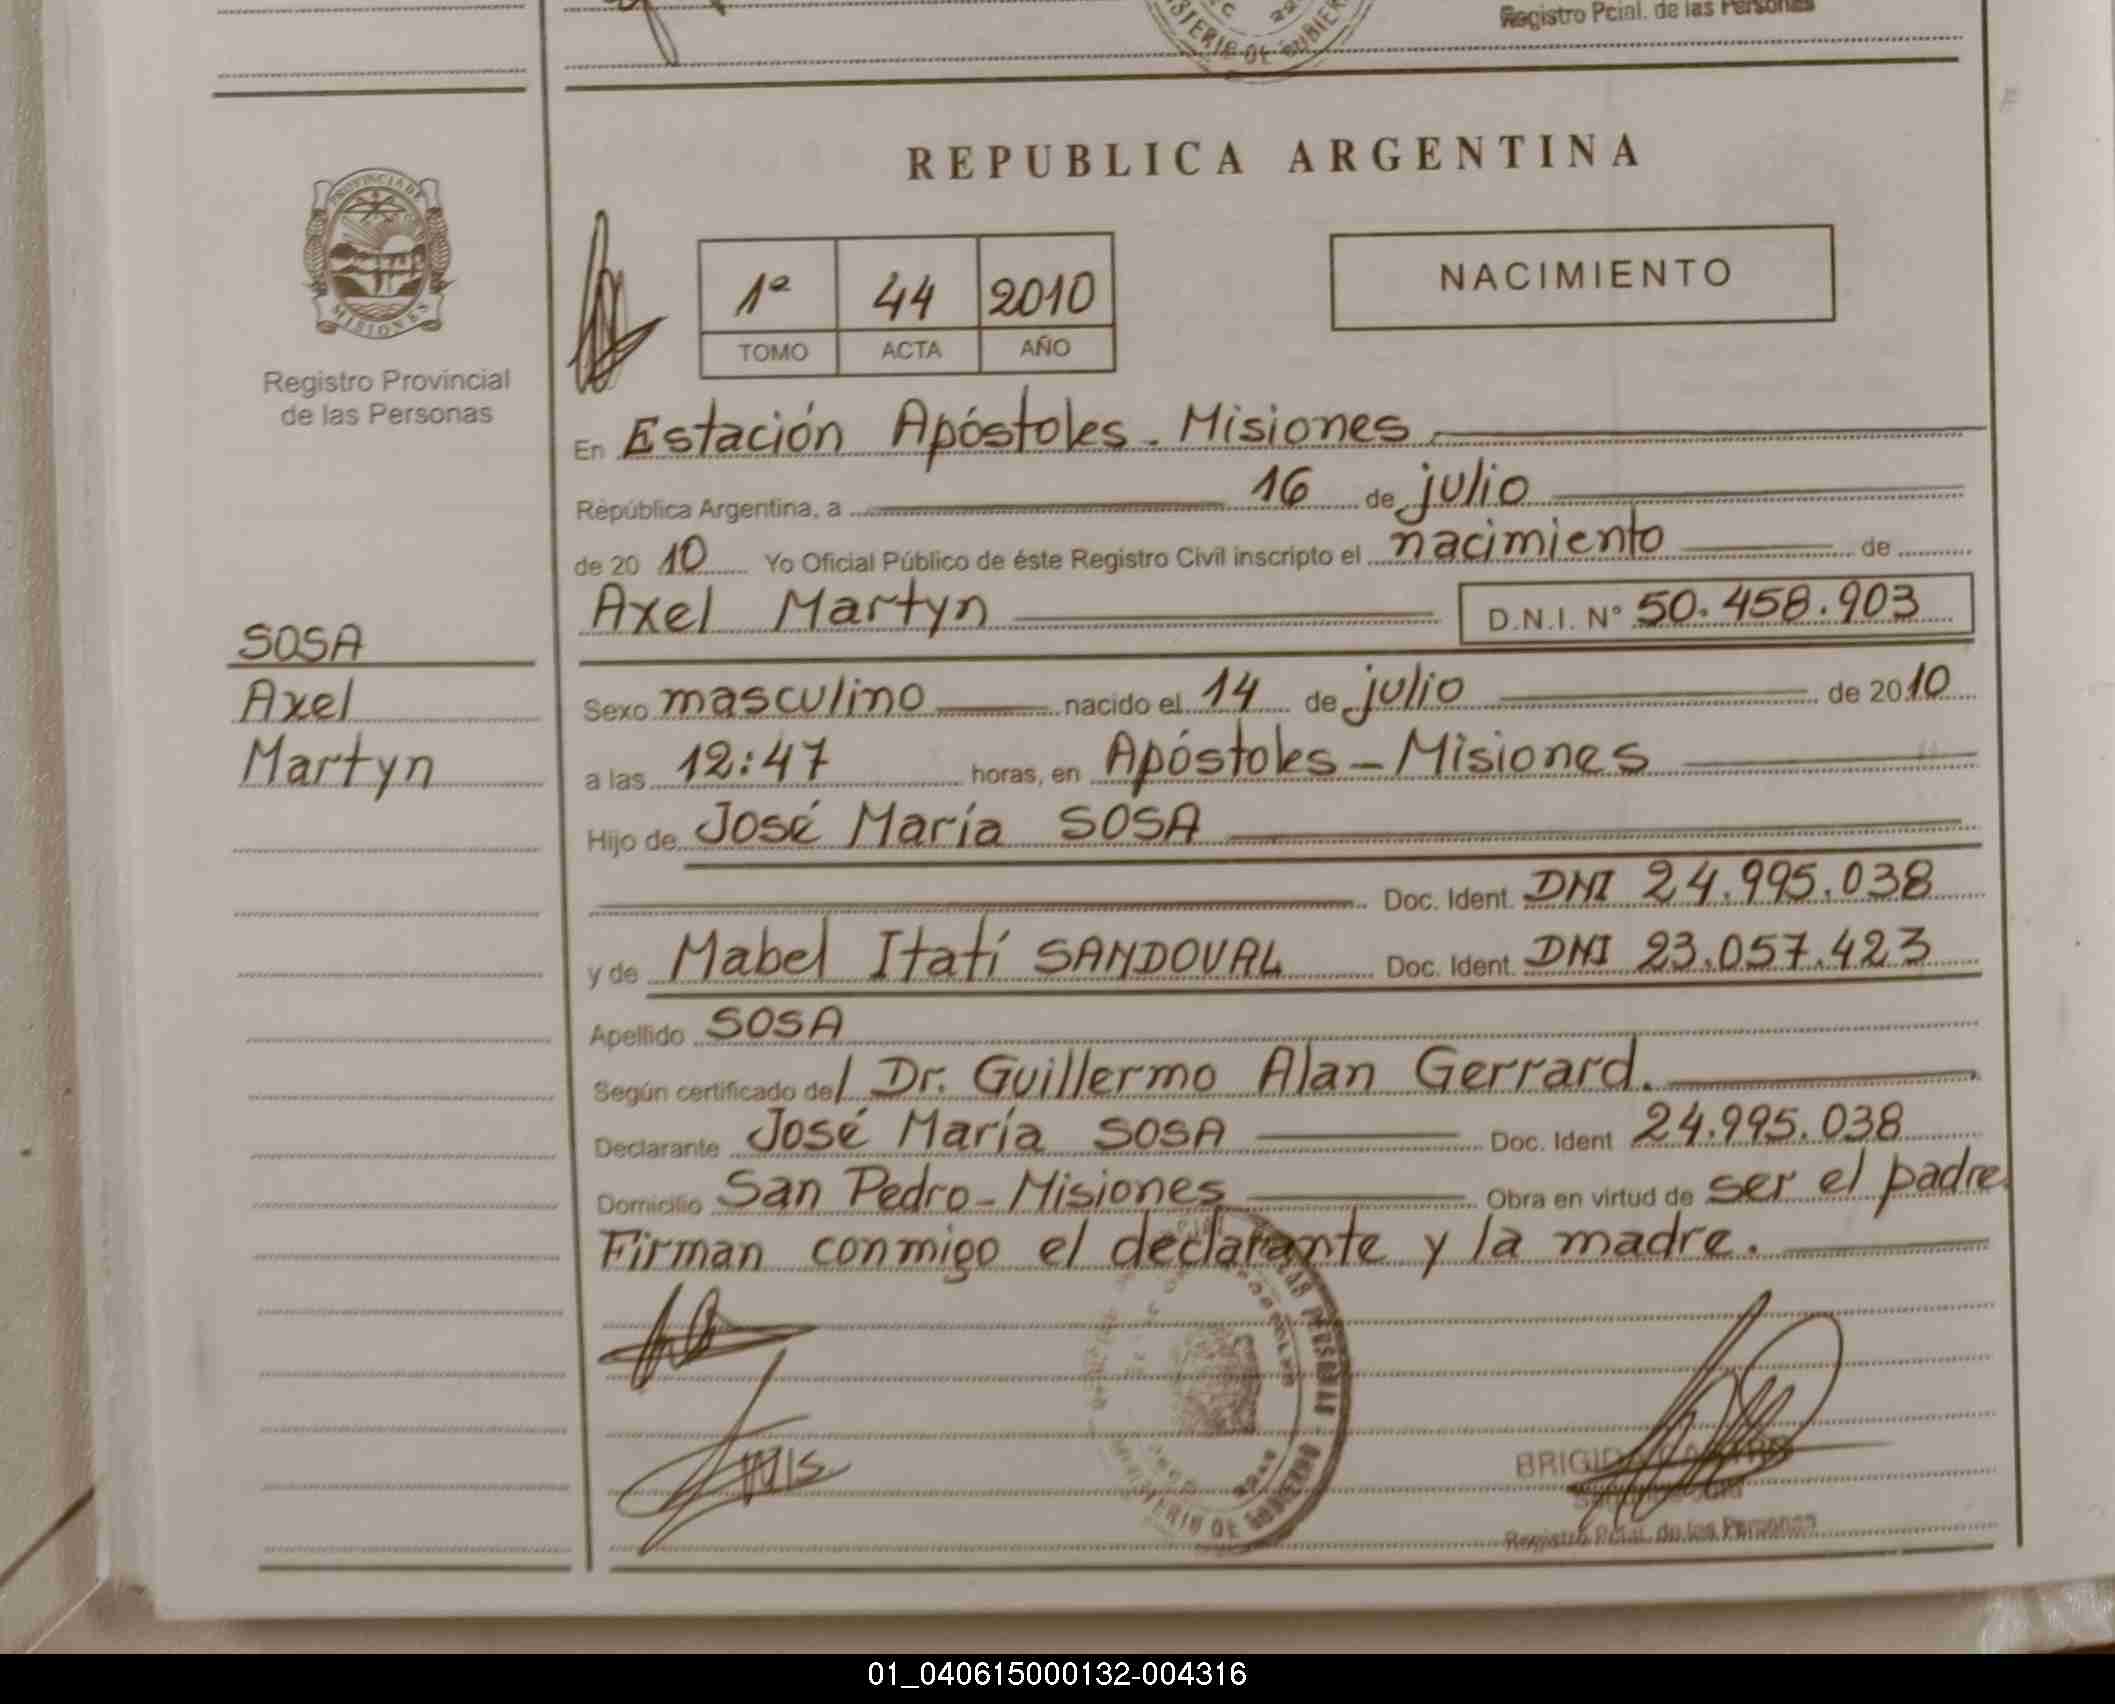 Registro Pcial. de las Personas
PROVINCIA DE
MISIONES
Registro Provincial
de las Personas
SOSA
Axel
Martyn
REPUBLICA ARGENTINA
1º 44 2010
TOMO ACTA AÑO
NACIMIENTO
En Estación Apóstoles - Misiones
República Argentina, a 16 de julio
de 20 10 Yo Oficial Público de éste Registro Civil inscripto el nacimiento de
Axel Martyn D.N.I. Nº 50.458.903
Sexo masculino nacido el 14 de julio de 20 10
a las 12:47 horas, en Apóstoles - Misiones
Hijo de José María SOSA
Doc. Ident. DNI 24.995.038
y de Mabel Itatí SANDOVAL Doc. Ident. DNI 23.057.423
Apellido SOSA
Según certificado del Dr. Guillermo Alan Gerrard.
Declarante José María SOSA Doc. Ident 24.995.038
Domicilio San Pedro - Misiones Obra en virtud de ser el padre.
Firman conmigo el declarante y la madre.
BRIGIDA
Registro Pcial. de las Personas
01_040615000132-004316